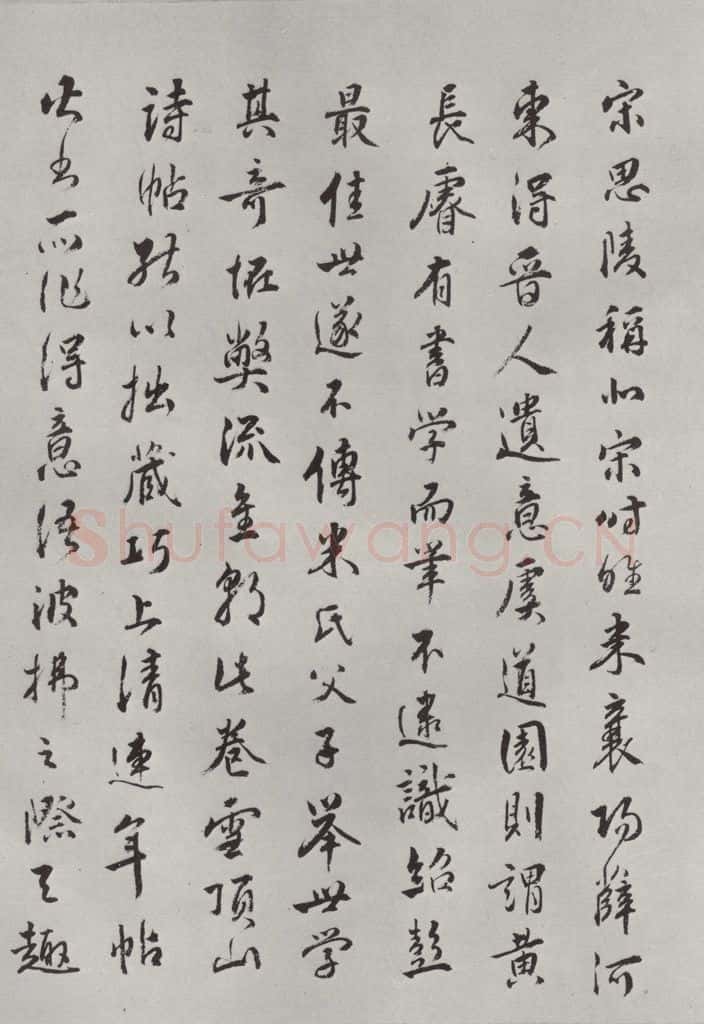 宋思陵稱北宋時唯米襄陽薛河
東得晉人遺意虞道園則謂黃
長睿有書學而筆不逮識紹彭
最佳世遂不傳米氏父子舉世学
其奇怪弊流金朝此卷雪頂山
詩帖能以拙藏巧上清連年帖
山得意波拂之際天趣
Shufawang.CN